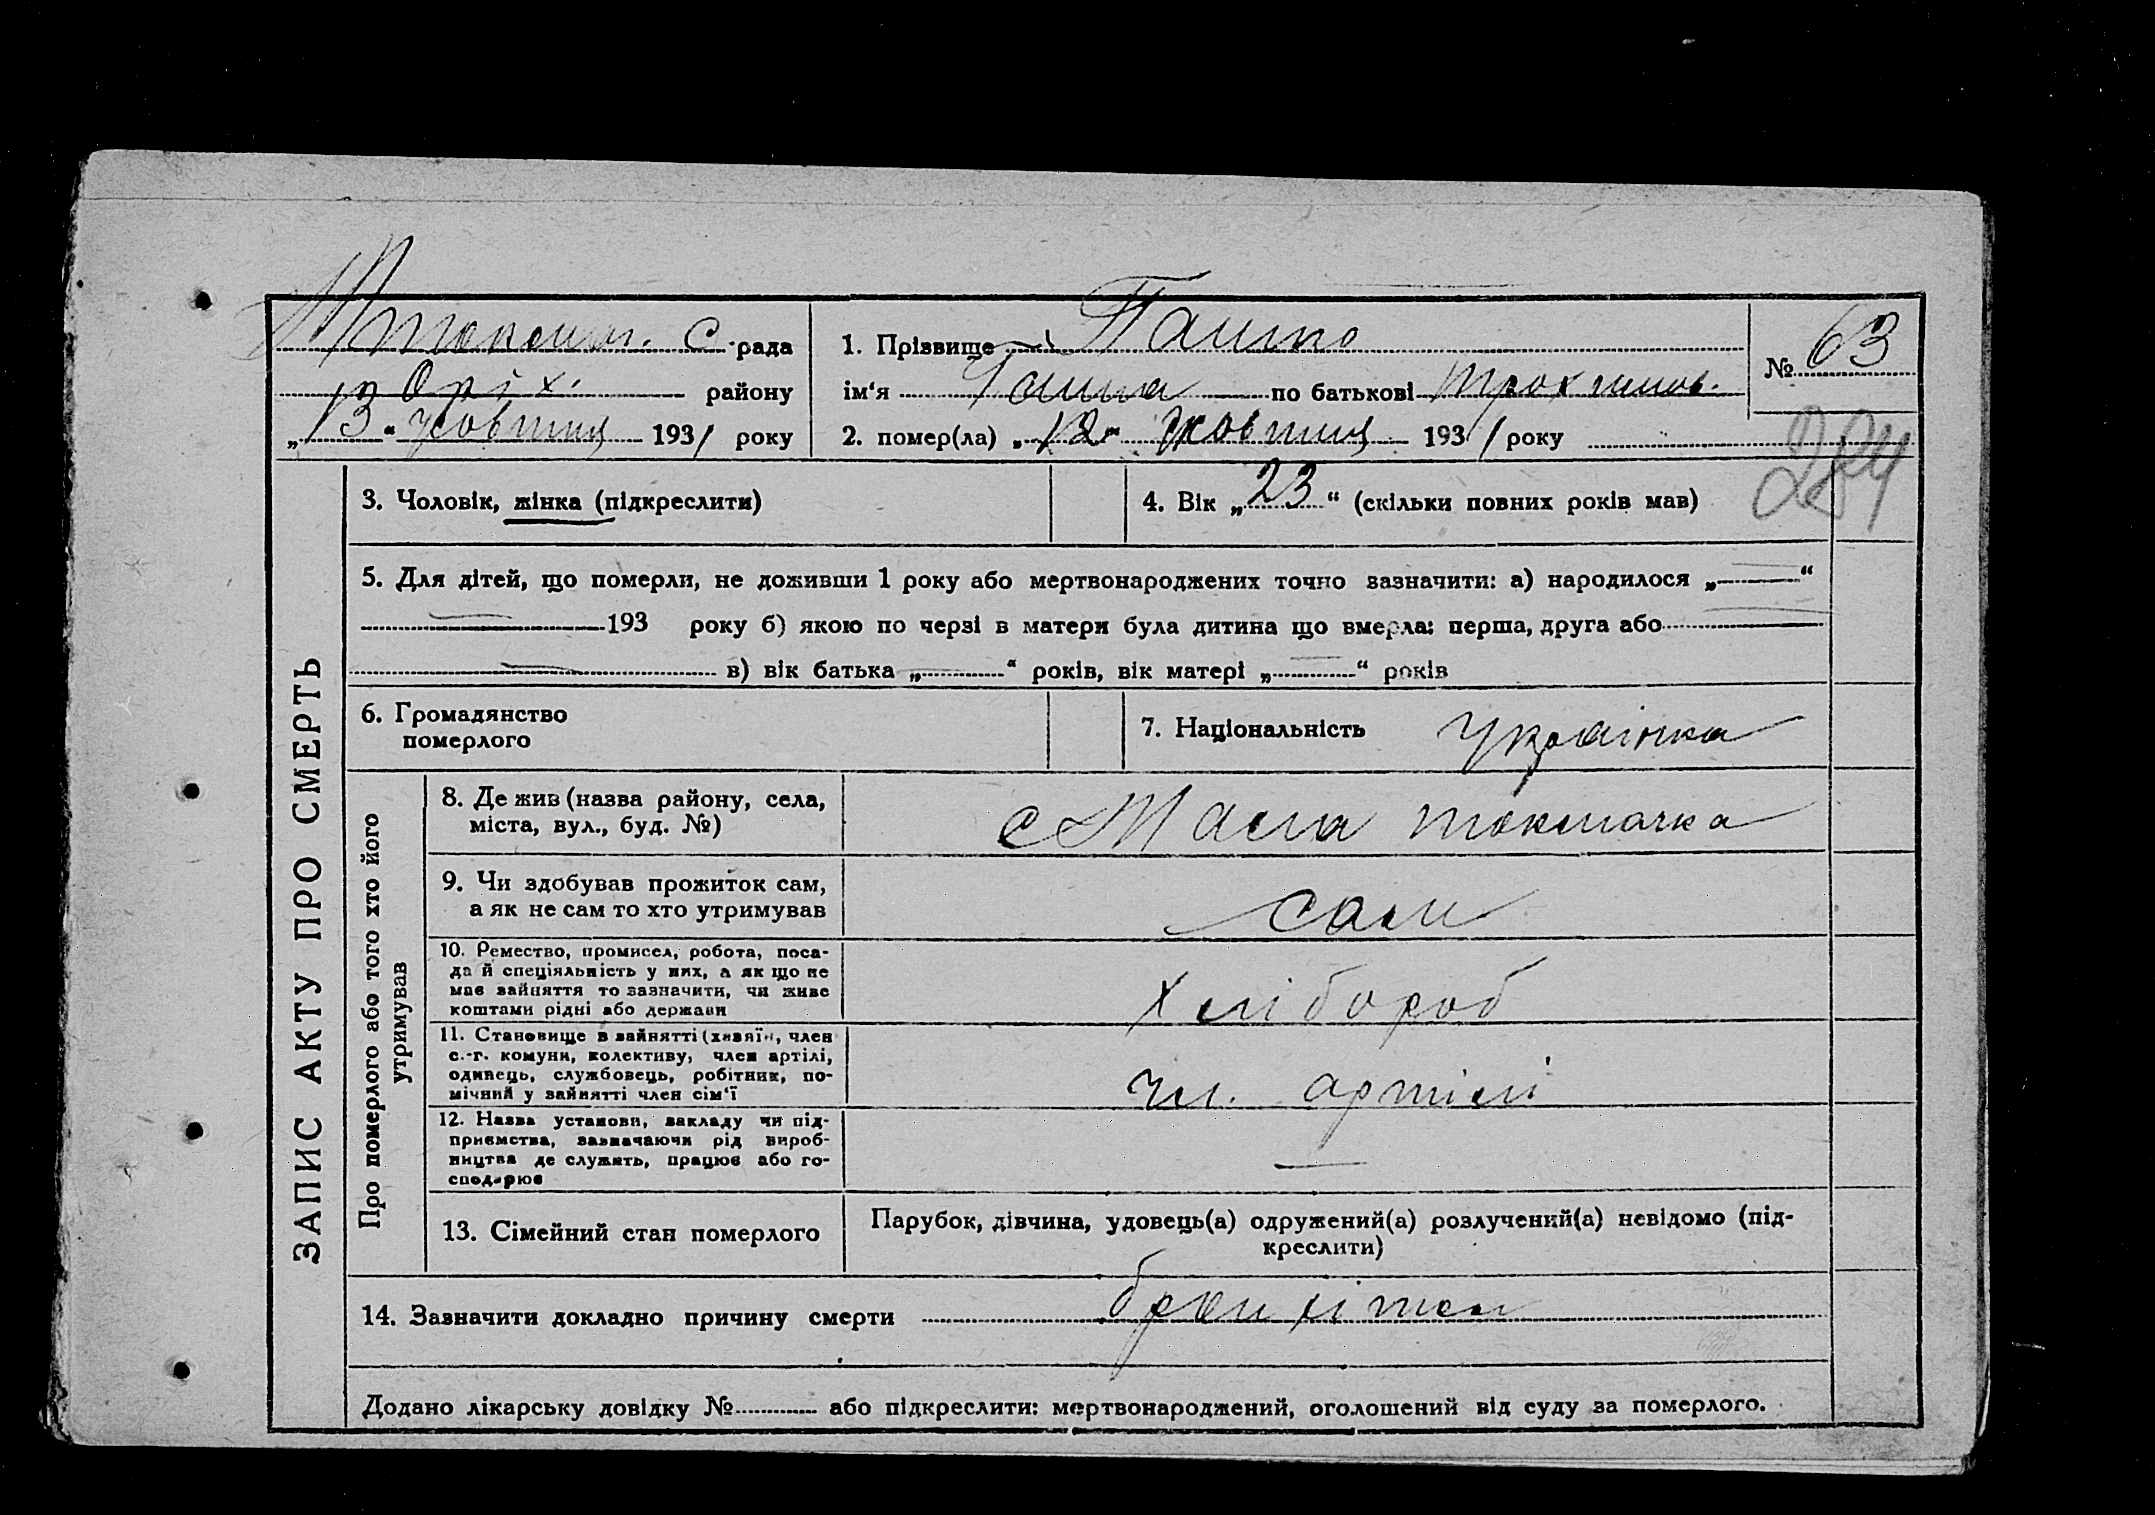 М Токмач. С. рада
Оріх. району
„13“ жовтня 1931 року
1. Прізвище Пашко
ім‘я Ганна по батькові Трохимов.
2. помер(ла) „12“ жовтня 1931 року
№ 63
284
ЗАПИС АКТУ ПРО СМЕРТЬ
3. Чоловік, жінка (підкреслити)
4. Вік „23“ (скільки повних років мав)
5. Для дітей, що померли, не доживши 1 року або мертвонароджених точно зазначити: а) народилося „—“
— 193 року б) якою по черзі в матери була дитина що вмерла: перша, друга або —
— в) вік батька „—“ років, вік матері „—“ років
6. Громадянство
померлого
7. Національність Українка
Про померлого або того хто його
утримував
8. Де жив (назва району, села,
міста, вул., буд. №)
с Мала токмачка
9. Чи здобував прожиток сам,
а як не сам то хто утримував
сам
10. Ремество, промисел, робота, поса-
да й спеціяльність у них, а як що не
має зайняття то зазначити, чи живе
коштами рідні або держави
хлібороб
11. Становище в зайнятті (хазяїн, член
с.-г. комуни, колективу, член артілі,
одинець, службовець, робітник, по-
мічний у зайнятті член сім‘ї
чл. артілі
12. Назва установи, закладу чи під-
приємства, зазначаючи рід вироб-
ництва де служить, працює або го-
сподарює
—
13. Сімейний стан померлого
Парубок, дівчина, удовець(а) одружений(а) розлучений(а) невідомо (під-
креслити)
14. Зазначити докладно причину смерти бронхітом
Додано лікарську довідку № або підкреслити: мертвонароджений, оголошений від суду за померлого.